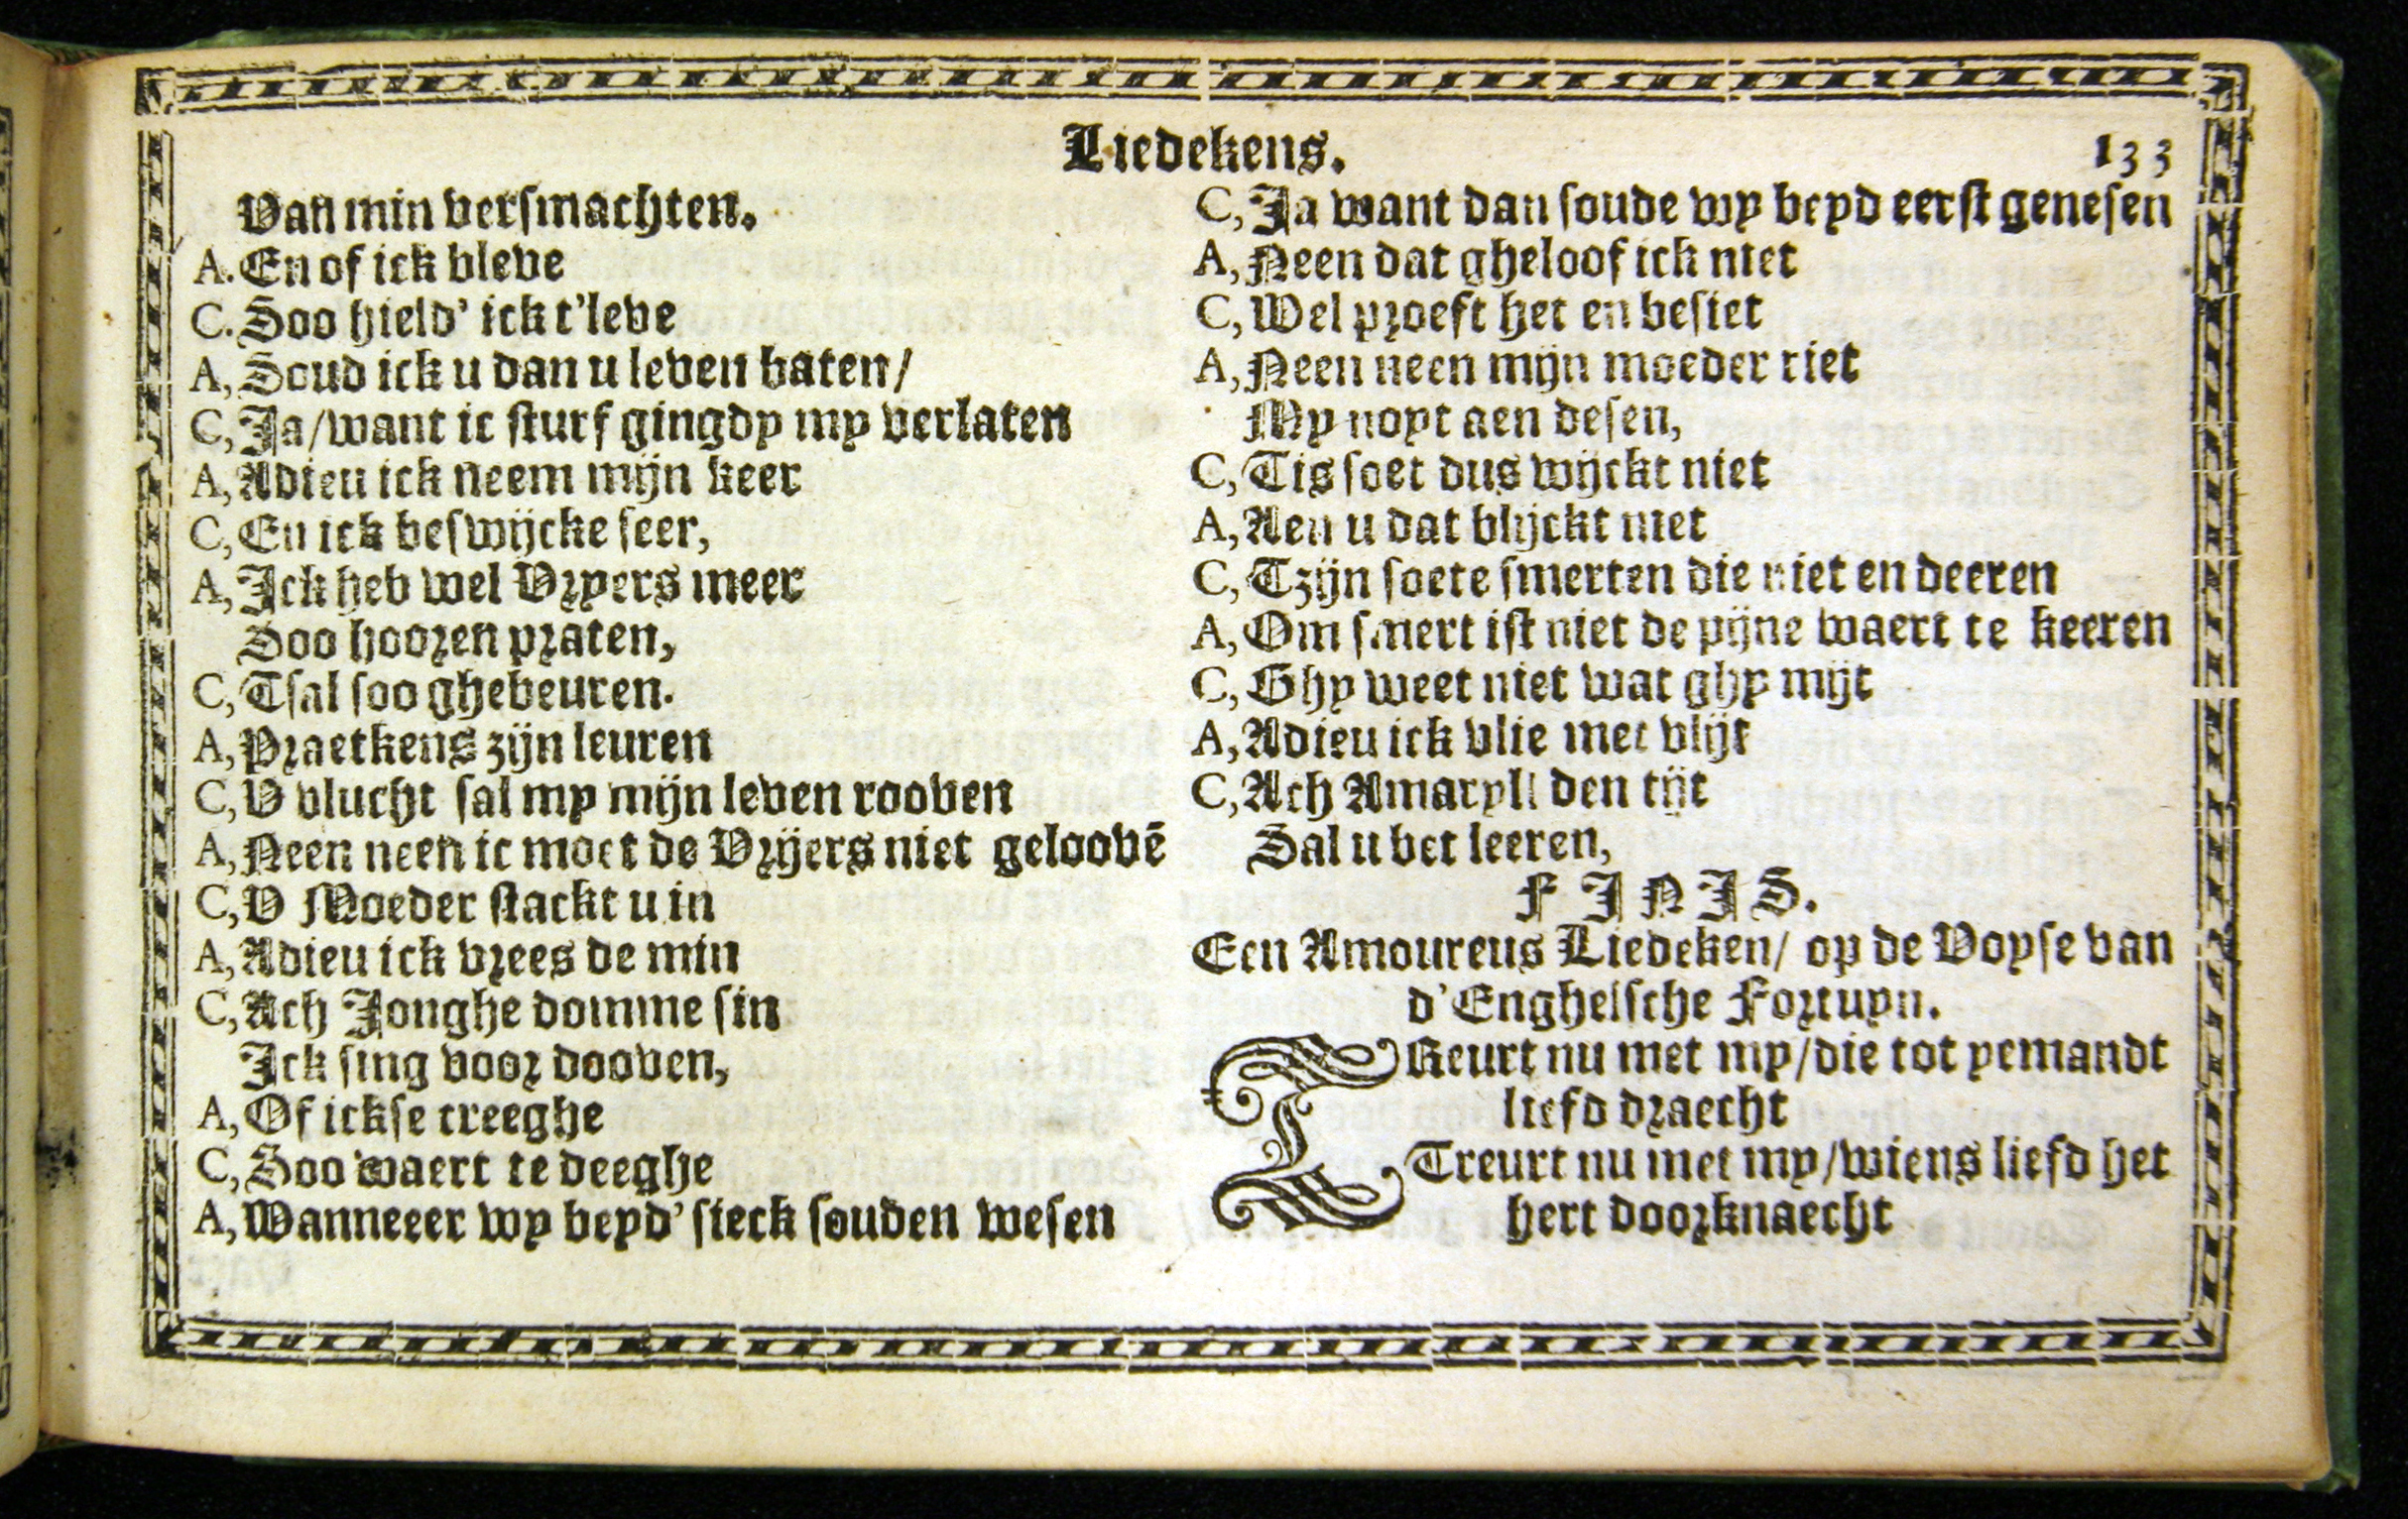 Liedekens. 133
Van min versmachten.
A. En of ick bleve
C. Soo hield' ick t'leve
A, Soud ick u dan u leven baten/
C, Ja/want ic sturf gingdy my verlaten
A, Adieu ick neem mijn keer
C, En ick beswijcke seer,
A, Ick heb wel Vryers meer
Soo hooren praten,
C, Tsal soo ghebeuren.
A, Praetkens zijn leuren
C, V vlucht sal my mijn leven rooven
A, Neen neen ic moet de Vrijers niet geloovē
C, V Moeder stackt u in
A, Adieu ick vrees de min
C, Ach Jonghe domme sin
Ick sing voor dooven,
A, Of ickse creeghe
C, Soo waert te deeghe
A, Wanneeer wy beyd' sieck souden wesen
C, Ja want dan soude wy beyd eerst genesen
A, Neen dat gheloof ick niet
C, Wel proeft het en besiet
A, Neen neen mijn moeder riet
My noyt aen desen,
C, Tis soet dus wijckt niet
A, Aen u dat blijckt niet
C, Tzijn soete smerten die niet en deeren
A, Om smert ist niet de pijne waert te keeren
C, Ghy weet niet wat ghy mijt
A, Adieu ick vlie met vlijt
C, Ach Amaryll den tijt
Sal u bet leeren,
FINIS.
Een Amoureus Liedeken/ op de Voyse van
d'Enghelsche Fortuyn.
TReurt nu met my/die tot yemandt
liefd draecht
Treurt nu met my/wiens liefd het
hert doorknaecht